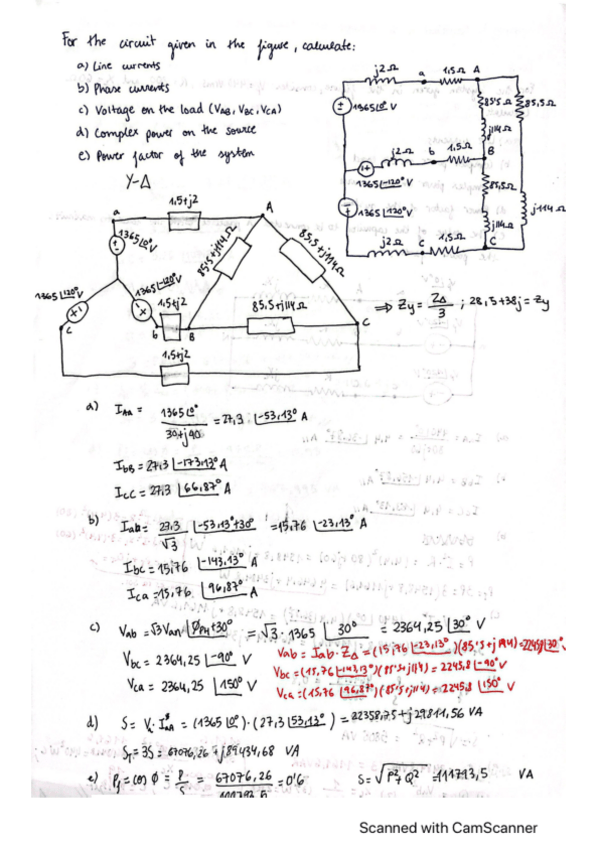 For the circuit given in the figure, calculate:
a) Line currents
b) Phase currents
c) Voltage on the load (VAB, VBC, VCA)
d) Complex power on the source
e) Power factor of the system
j2Ω a 1,5Ω A
1365∠0° V
85'5Ω 85,5Ω
j114Ω
j2Ω b 1,5Ω B
1365∠-120° V
85,5Ω
1365∠120° V
j114Ω j114Ω
j2Ω c 1,5Ω C
Y-Δ
a 1,5+j2 A
1365∠0° V
85'5+j114Ω 85,5+j114Ω
1365∠120° V 1365∠-120° V
1,5+j2
c b B 85,5+j114Ω C
1,5+j2
⇒ Zy = ZΔ/3 ; 28,5+38j = Zy
a) IAA = 1365∠0° / 30+j40 = 27,3 ∠-53,13° A
IbB = 27,3 ∠-173,13° A
ICC = 27,3 ∠66,87° A
b) Iab = 27,3/√3 ∠-53,13°+30° = 15,76 ∠-23,13° A
Ibc = 15,76 ∠-143,13° A
Ica = 15,76 ∠96,87° A
c) Vab = √3 Van ∠ØPH+30° = √3 · 1365 ∠30° = 2364,25 ∠30° V
Vab = Iab · ZΔ = (15,76 ∠-23,13°)(85'5+j114) = 2245,8 ∠30°
Vbc = 2364,25 ∠-90° V
Vbc = (15,76 ∠-143,13°)(85'5+j114) = 2245,8 ∠-90° V
Vca = 2364,25 ∠150° V
Vca = (15,76 ∠96,87°)(85'5+j114) = 2245,8 ∠150° V
d) S = V · I*AA = (1365∠0°) · (27,3 ∠53,13°) = 22358,75+j29811,56 VA
ST = 3S = 67076,26+j89434,68 VA
e) Pf = cos Ø = P/S = 67076,26 / = 0'6 S = √P²+Q² = 111793,5 VA
Scanned with CamScanner